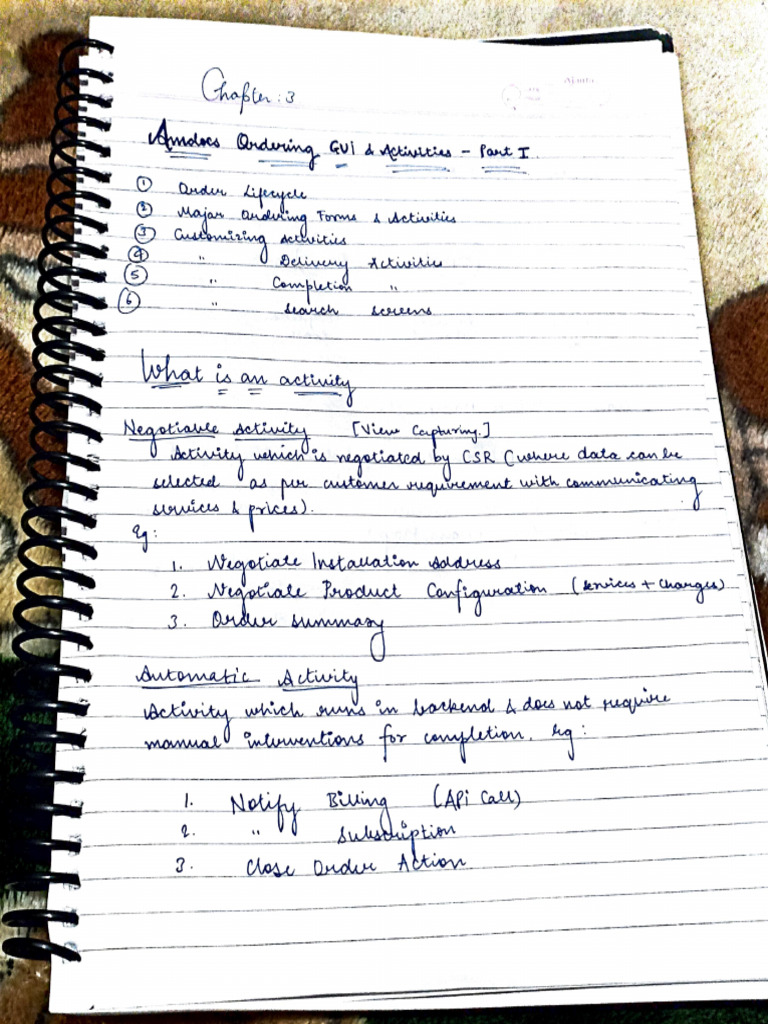 Chapter: 3
Amdocs Ordering GUI & Activities - Part I.
① Order Lifecycle
② Major Ordering Forms & Activities
③ Customizing Activities
④ " Delivery Activities
⑤ " Completion "
⑥ " Search Screens
What is an activity
Negotiable Activity [View Capturing.]
Activity which is negotiated by CSR (where data can be
selected as per customer requirement with communicating
services & prices).
Eg:
1. Negotiate Installation Address
2. Negotiate Product Configuration (services + charges)
3. Order Summary
Automatic Activity
Activity which runs in backend & does not require
manual interventions for completion. Eg:
1. Notify Billing (API Call)
2. " Subscription
3. Close Order Action